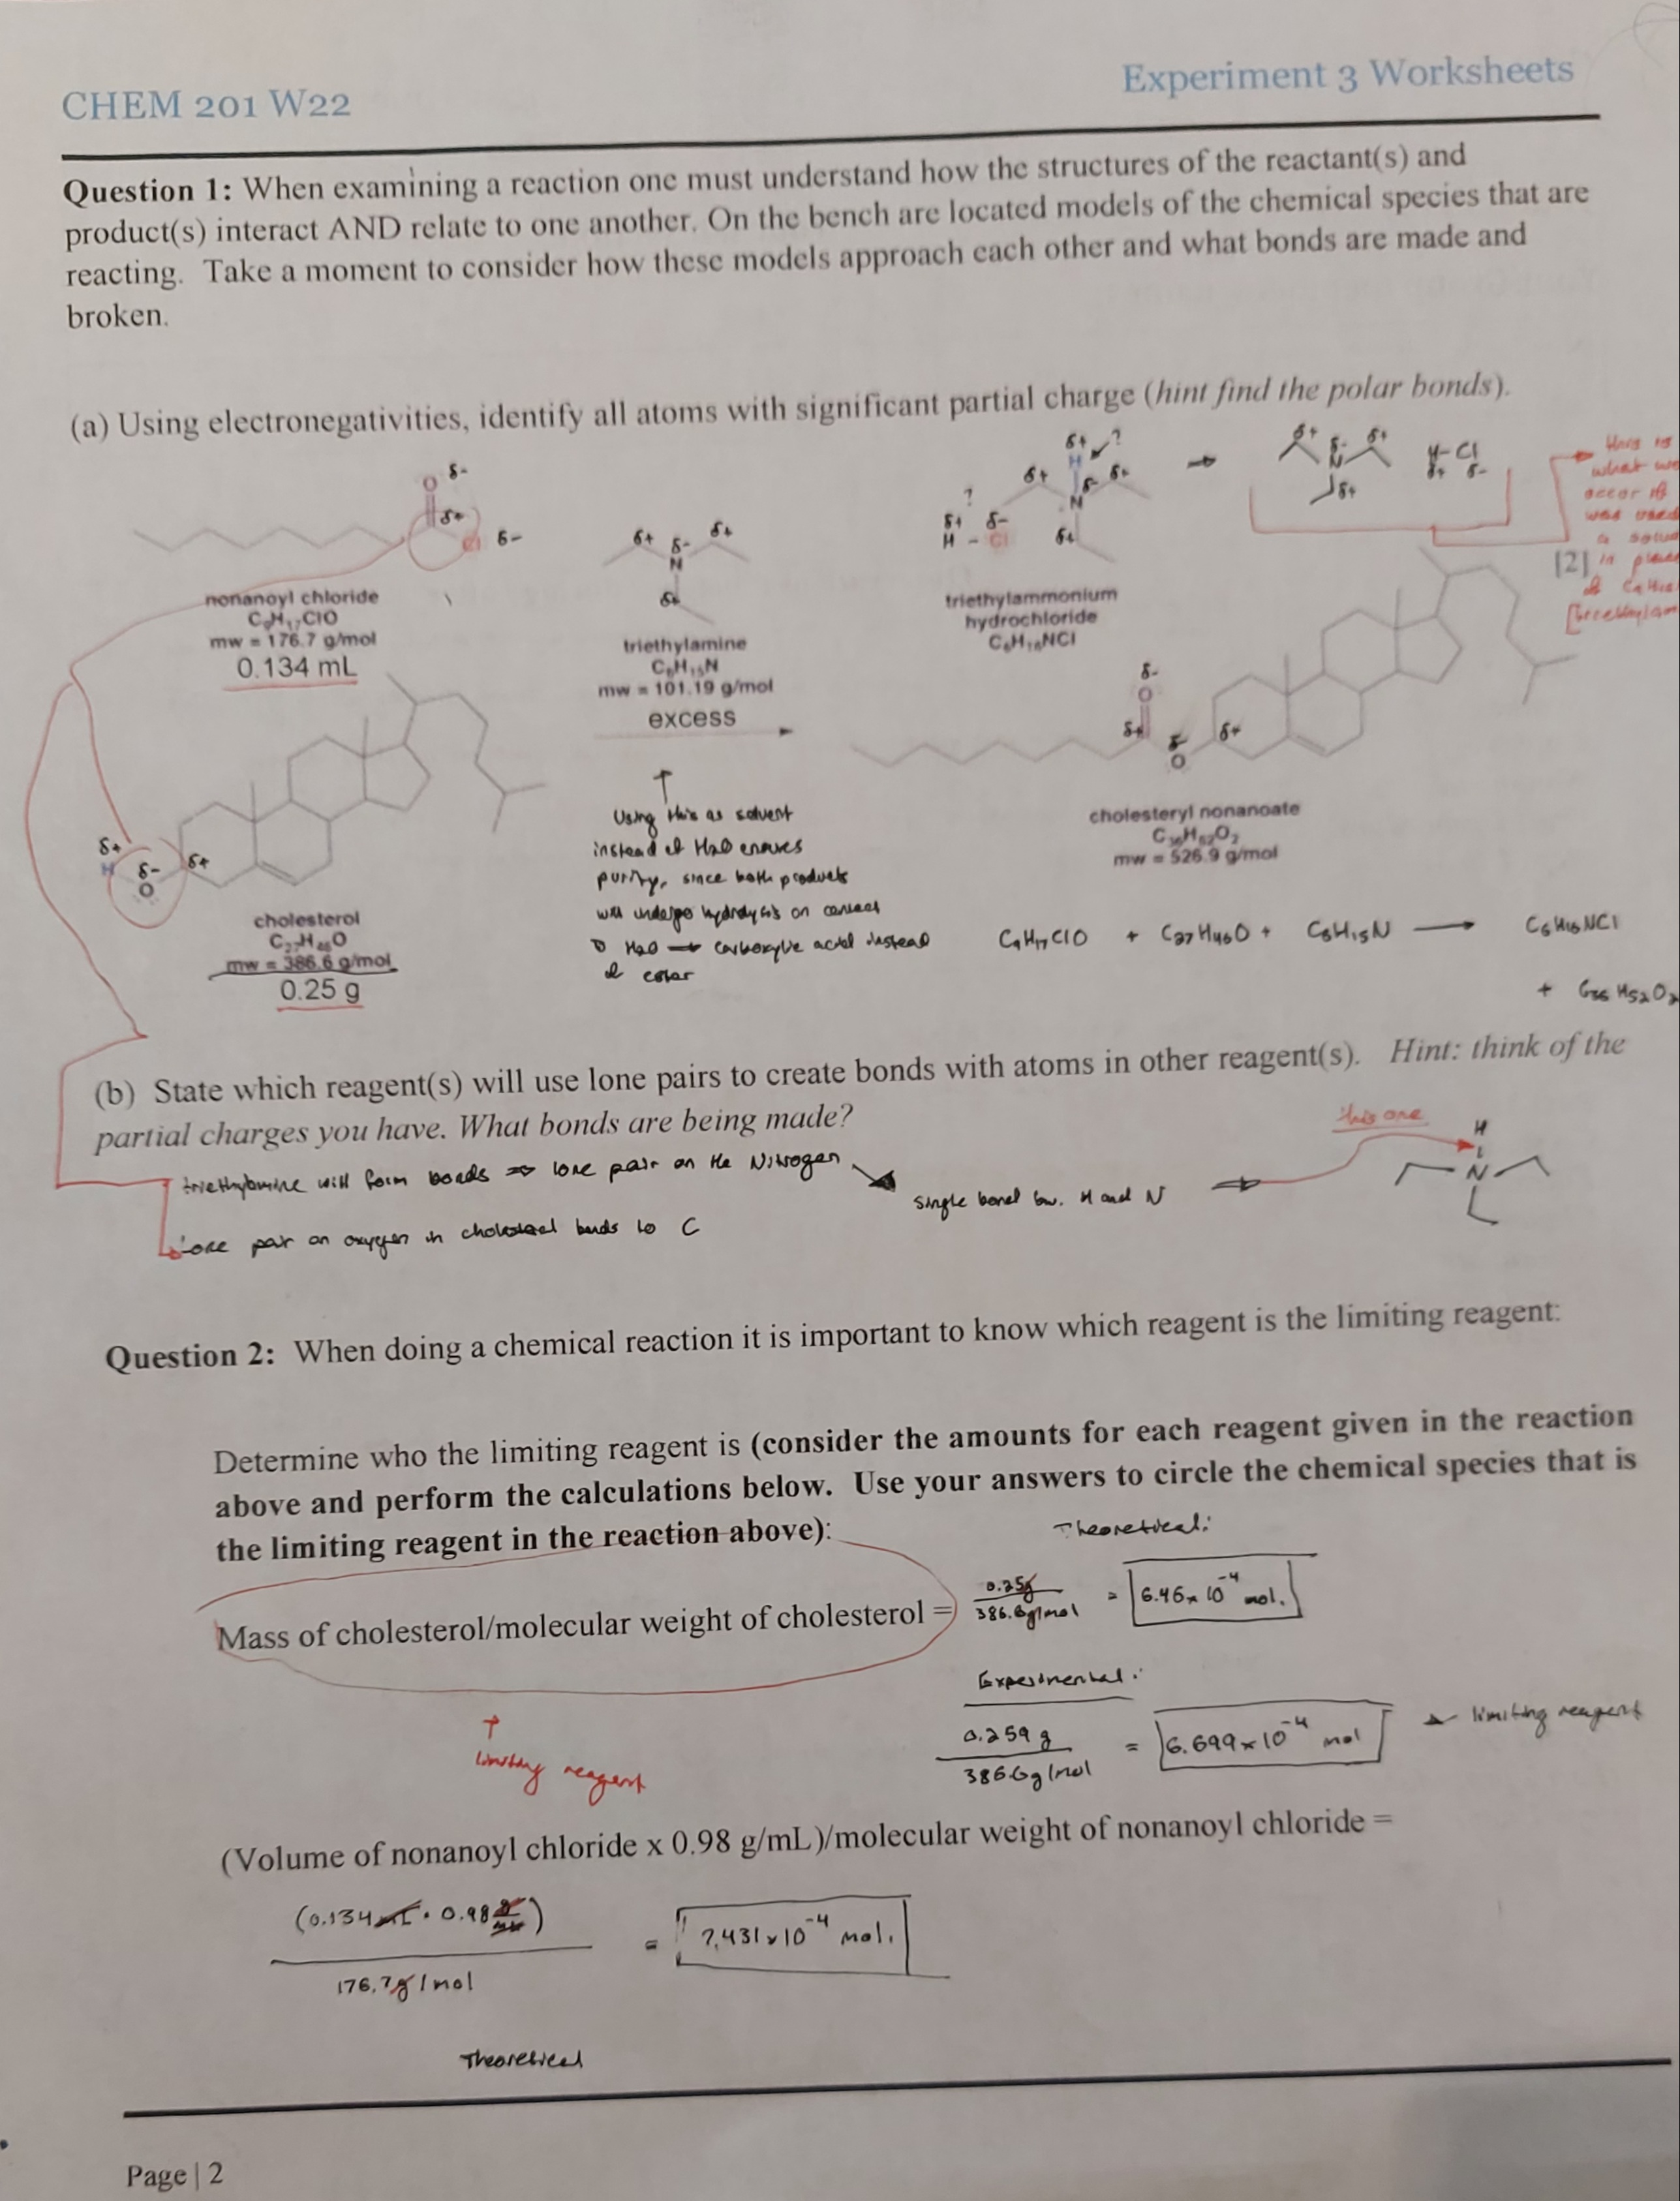 CHEM 201 W22
Experiment 3 Worksheets
Question 1: When examining a reaction one must understand how the structures of the reactant(s) and
product(s) interact AND relate to one another. On the bench are located models of the chemical species that are
reacting. Take a moment to consider how these models approach each other and what bonds are made and
broken.
(a) Using electronegativities, identify all atoms with significant partial charge (hint find the polar bonds).
O δ-
δ+
Cl δ-
nonanoyl chloride
C9H17ClO
mw = 176.7 g/mol
0.134 mL
δ+ δ- δ+
N
δ+
triethylamine
C6H15N
mw = 101.19 g/mol
excess
δ+ ?
H
δ+ δ- δ+
N
?
δ+ δ-
H - Cl
δ+
triethylammonium
hydrochloride
C6H16NCl
δ+ δ- δ+
N
δ+
H-Cl
δ+ δ-
this is
what
occur if
was used
a
in
[2]
δ+
H δ- δ+
O
cholesterol
C27H46O
mw = 386.6 g/mol
0.25 g
Using this as solvent
instead of H2O ensures
purity, since both products
will undergo hydrolysis on contact
H2O → carboxylic acid instead
of ester
δ-
O
δ+ δ- δ+
O
cholesteryl nonanoate
C36H62O2
mw = 526.9 g/mol
C9H17ClO + C27H46O + C6H15N → C6H16NCl
+ C36H52O2
(b) State which reagent(s) will use lone pairs to create bonds with atoms in other reagent(s). Hint: think of the
partial charges you have. What bonds are being made?
this one
triethylamine will form bonds ⇒ lone pair on the Nitrogen
single bond bw. H and N
H
N
Lone pair on oxygen in cholesterol bonds to C
Question 2: When doing a chemical reaction it is important to know which reagent is the limiting reagent:
Determine who the limiting reagent is (consider the amounts for each reagent given in the reaction
above and perform the calculations below. Use your answers to circle the chemical species that is
the limiting reagent in the reaction above):
Theoretical:
Mass of cholesterol/molecular weight of cholesterol = 0.25g / 386.6g/mol = 6.46 x 10^-4 mol.
Experimental:
0.259 g / 386.6g/mol = 6.699 x 10^-4 mol
limiting reagent
limiting reagent
(Volume of nonanoyl chloride x 0.98 g/mL)/molecular weight of nonanoyl chloride =
(0.134 mL · 0.98 g/mL) / 176.7g/mol = 7.431 x 10^-4 mol.
Theoretical
Page | 2